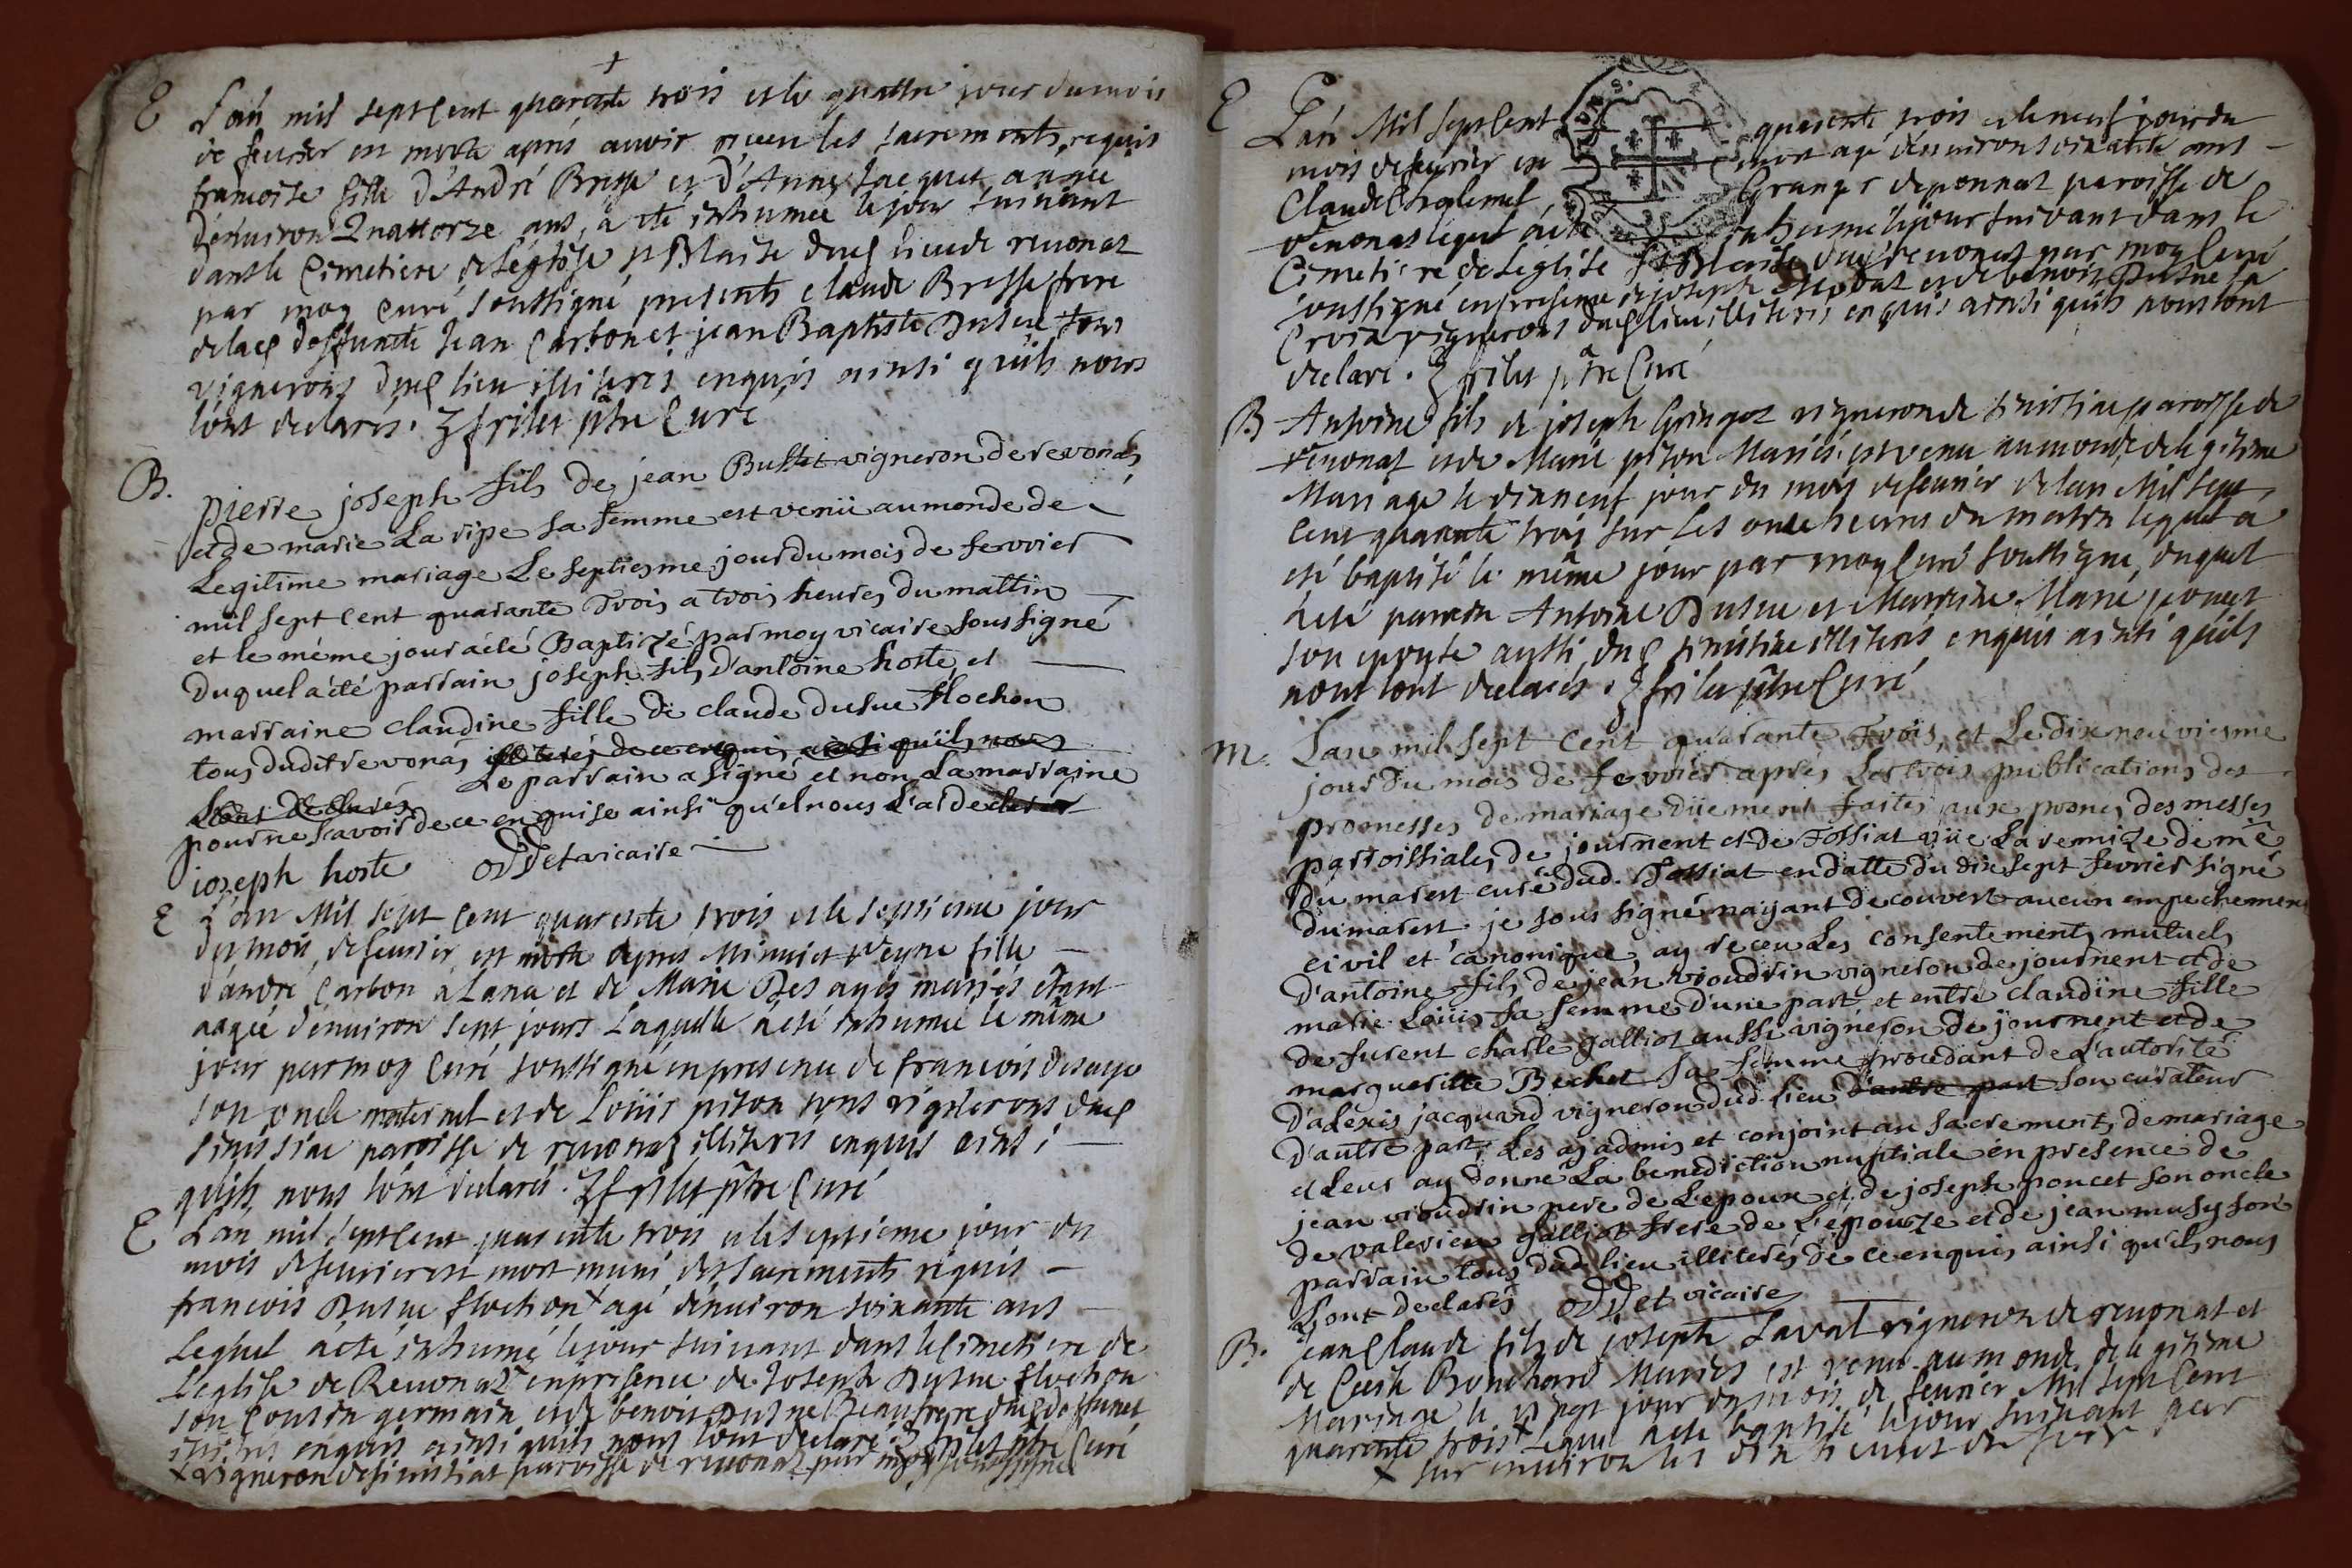 E L'an mil sept cent quarente trois et le quattre jour du mois
de feurier est morte aprés auoir receu les sacrements requis
francoise fille d'André Bresse et d'Anne Jacquet aagée
d'enuiron Quattorze ans, a été inhumée le jour suiuant
dans le Cimetiere de Léglise St Blaise dud lieu de reuonas
par moy Curé soussigné presents claude Bresse frere
de lad deffuncte Jean Carbon et jean Baptiste Dusue tous
vignerons dud lieu illiteres enquis ainsi qu'ils nous
lont declarés. frilet ptre Curé
B. pierre joseph fils de jean Buffet vigneron de revonas
et de marie La ripe sa femme est venü au monde de
Legitime mariage Le septiesme jour du mois de fevrier
mil sept cent quarante Trois a trois heures du mattin
et le méme jour a été Baptizé par moy vicaire sous signé
Duquel a été parrain joseph fils d'antoine hoste et
marraine claudine fille de claude dusue flochon
tous dudit revonas illiterés de ce enquis ainsi qu'ils nous
L'ont declarés Le parrain a signé et non La marraine
pour ne scavoir de ce enquise ainsi qu'el nous L'a declaré
ioseph hoste oddet vicaire
E L'an Mil sept cent quarente trois et le septieme jour
du mois de feurier est morte apres Minuict Reyne fille
d'andré Carbon a Lana et de Marie Des ayes mariés étant
aagée d'enuiron sept jours Laquelle a eté inhumée le même
jour par moy Curé soussigné en presence de francois Desaye
son oncle maternel et de Loüis piton tous vignerons dud
Senissiac paroisse de reuonas illiteres enquis ainsi
qu'ils nous lont declarés. frilet ptre Curé
E L'an mil sept cent quarente trois et le septieme jour du
mois de feurier est mort muni des sacrements requis
francois Dusue flochon x agé d'enuiron soixante ans
Lequel a été inhumé le jour suiuant dans le Cimetiere de
Leglise de Reuonas en presence de Joseph Dusue flochon
son Cousin germain et de benoit Dusue Beaufrere dud deffunct
illiteres enquis ainsi quils nous lont declaré. frilet ptre Curé
x vigneron de senissiat paroisse de reuonas par moy soussigné
E L'an Mil sept cent quarente trois et le neuf jour du
mois de feurier est mort agé d'enuiron soixante ans
Claude Granger de ponnas paroisse de
reuonas lequel a été inhumé le jour suivant dans le
Cimetiere de Leglise St Blaise dud reuonas par moy Curé
soussigné en presence de joseph et de benoit Dusue la
Croix vignerons dud lieu illiteres enquis ainsi quils nous lont
declaré. frilet ptre Curé
B Antoine fils de joseph Gringoz vigneron de senissiac paroisse de
reuonas et de Marie piton Mariés est venu au monde de legitime
Mariage le dixneuf jour du moy de feurier de lan Mil sept
cent quarante trois sur les onze heures du matin lequel a
eté baptisé le même jour par moy Curé soussigné, duquel
a eté parrein Antoine Dusue et Marraine Marie
son epouse aussi dud senissiac illiterés enquis ainsi quils
nous lont declarés. frilet ptre Curé
m. L'an mil sept cent quarante Trois, et Le dix neuviesme
jour du mois de fevrier apres Les trois publications des
promesses de mariage düement faites aux prones des messes
parroissiales de journent et de Tossiat vüe La remize de mre
du marest curé dud. Tossiat en datte du dix sept fevrier signé
dumarest je sous signé n'ayant decouvert aucun empechement
civil et canonique, ay receu Les consentements mutuels
D'antoine fils de jean vioudrin vigneron de journent et de
marie Loüis sa femme d'une part et entre claudine fille
de furent charle galliot aussi vigneron de journent et de
marguerite Bechet sa femme procedant de L'autorité
D'alexis jacquand vigneron dud. lieu d'autre part son curateur
d'autre part, Les ay admis et conjoint au sacrement de mariage
et Leur ay donné La benediction nuptiale en presence de
jean vioudrin pere de L'epoux et de joseph poncet son oncle
de valerien galliot frere de L'épouze et de jean musy son
parrain tous dud. lieu illiterés de ce enquis ainsi qu'ils nous
L'ont declarés oddet vicaire
B. jean Claude fils de joseph Laval vigneron de reuonas et
de Bouchard Mariés est venu au monde de legitime
Mariage le vingt jour du mois de feurier Mil sept cent
quarente trois x Lequel a eté baptisé le jour suiuant par
x sur enuiron les dix heures du soir